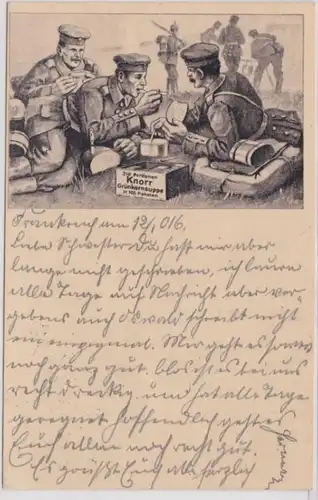 250 Portionen
Knorr
Grünkernsuppe
in 100 Paketen
Frankreich am 12/1 016.
Liebe Schwester Du hast mir aber
lange nicht geschrieben, ich laure
alle Tage auf Nachricht aber ver-
gebens auch Oswald schreibt nicht
ein einzigmal. Mir geht es soweit
noch ganz gut, blos ist es bei uns
recht dreckig, und hat alle Tage
geregnet hoffendlich geht es
Euch alle noch recht gut.
Es grüßt Euch all herzlich